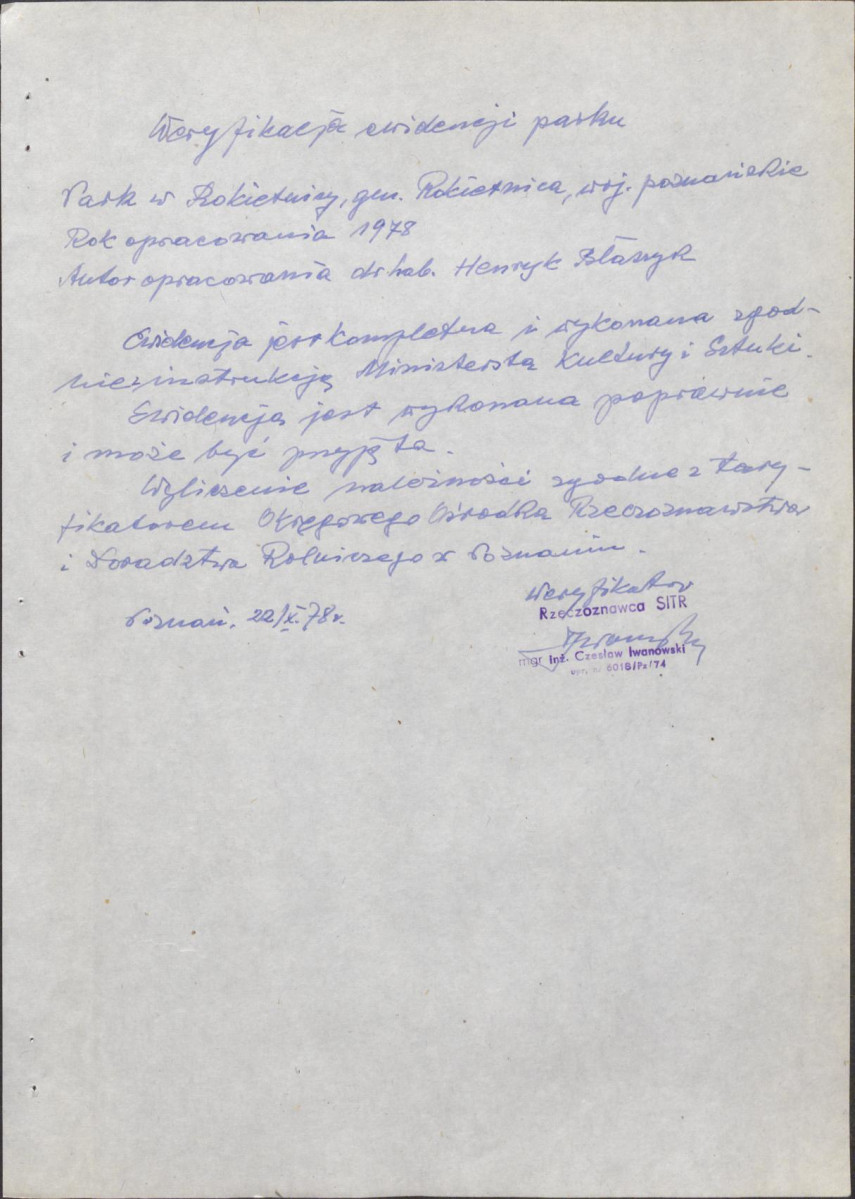 Weryfikacja ewidencji parku
Park w Rokietnicy, gm. Rokietnica, woj. poznańskie
Rok opracowania 1978
Autor opracowania dr hab. Henryk Błaszyk
Ewidencja jest kompletna i wykonana zgod-
nie z instrukcją Ministerstwa Kultury i Sztuki.
Ewidencja jest wykonana poprawnie
i może być przyjęta.
Wyliczenie należności zgodne z tary-
fikatorem Okręgowego Ośrodka Rzeczoznawstwa
i Doradztwa Rolniczego w Poznaniu.
Weryfikator
Rzeczoznawca SITR
Poznań, 22/X.78r.
Iwanowski
mgr inż. Czesław Iwanowski
6018/Pz/74